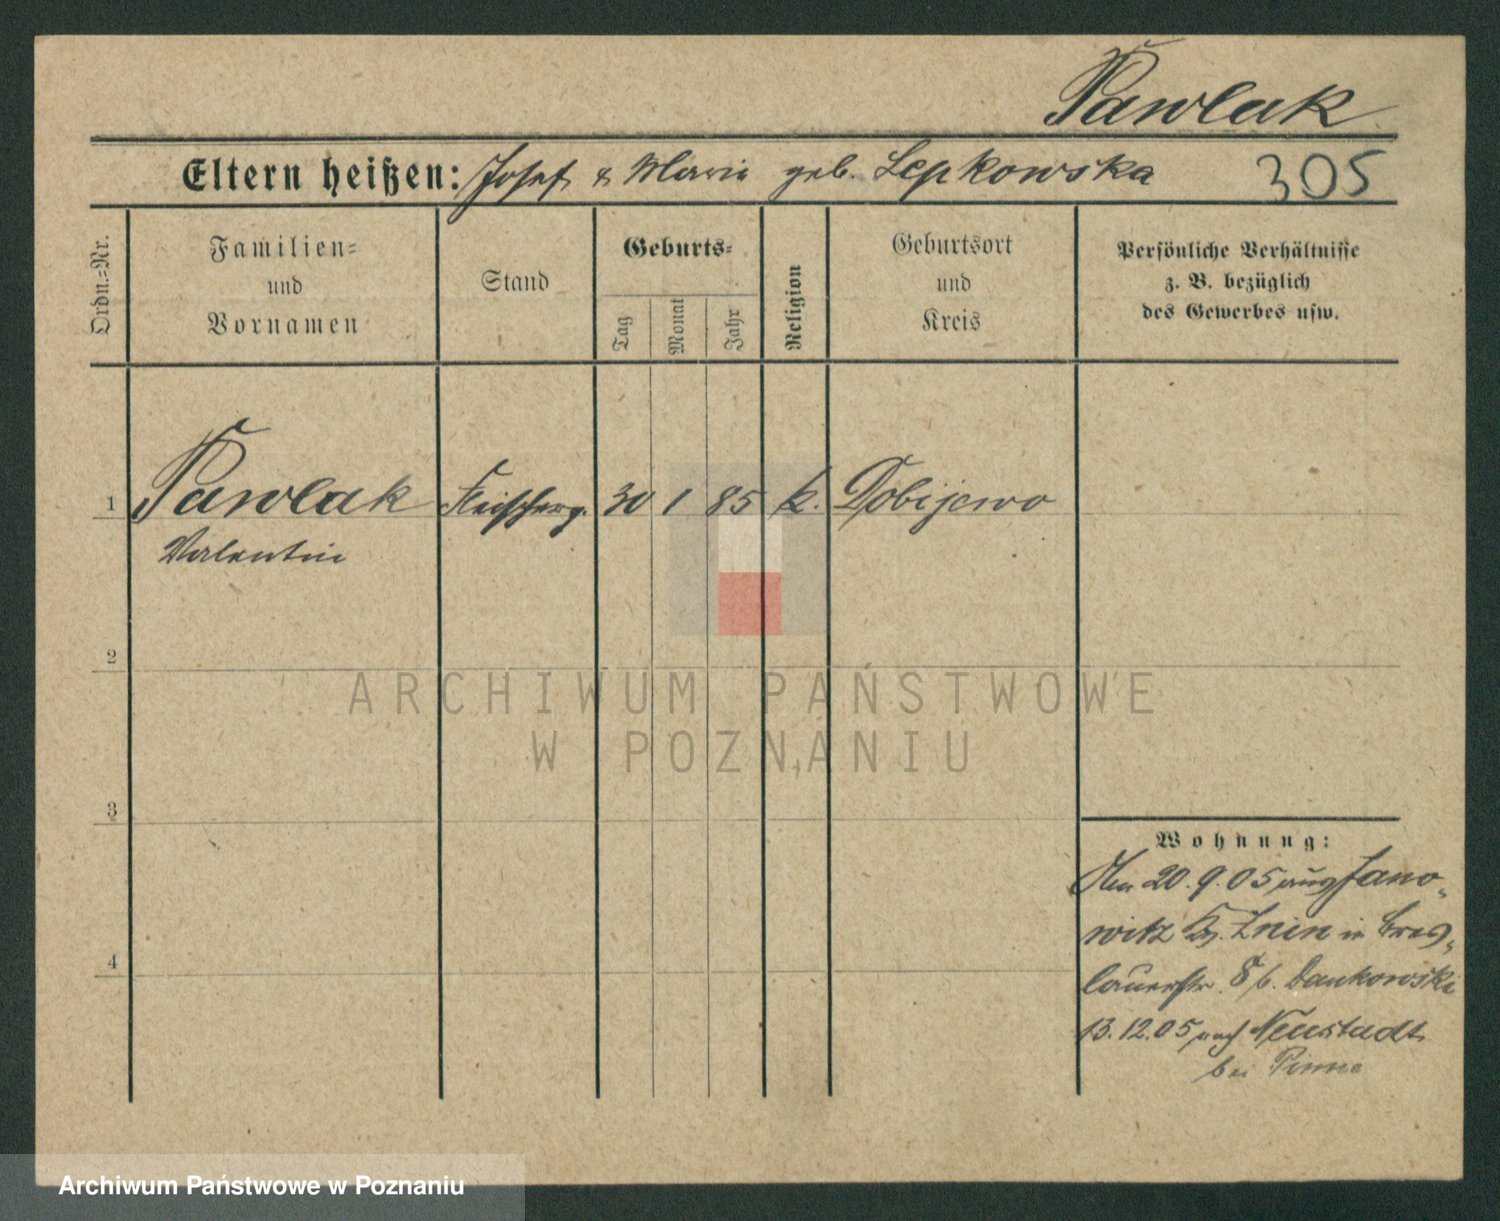 Pawlak
Eltern heißen: Josef & Marie geb. Lepkowska 305
Ordn.-Nr.
Familien-
und
Vornamen
Stand
Geburts-
Tag
Monat
Jahr
Religion
Geburtsort
und
Kreis
Persönliche Verhältnisse
z. B. bezüglich
des Gewerbes usw.
1 Pawlak Fleischerg. 30 1 85 k. Dobijewo
Valentin
2
3
4
Wohnung:
Am 20.9.05 aus Jano-
witz Kr. Znin in Bres-
lauerstr. 8 b. Dankowski
13.12.05 nach Neustadt
bei Pinne
ARCHIWUM PAŃSTWOWE
W POZNANIU
Archiwum Państwowe w Poznaniu